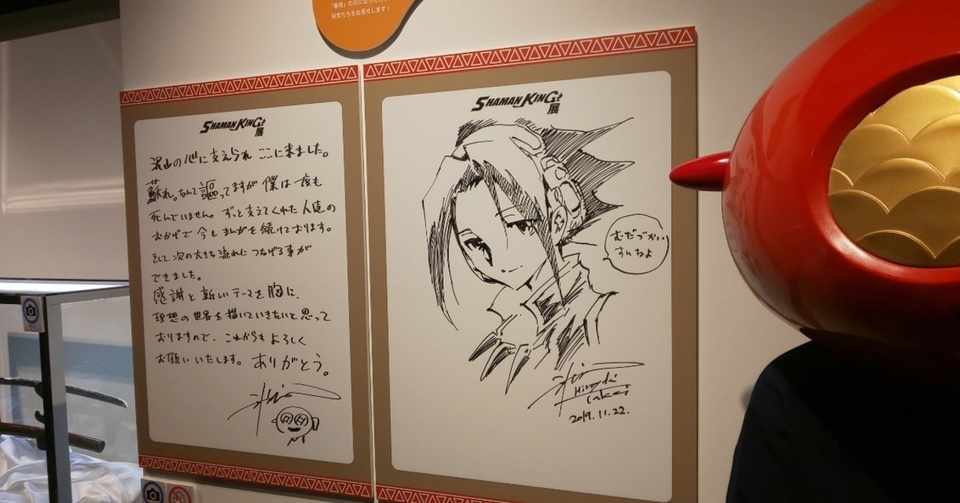 SHAMAN KING展
沢山の心に支えられ ここに来ました。
蘇れ。なんて謳ってますが 僕は一度も
死んでいません。ずっと支えてくれた人達の
おかげで今もまんがを続けております。
そして次の大きな流れに つなげる事が
できました。
感謝と新しいテーマを胸に、
理想の世界を描いていきたいと思って
おりますので、これからもよろしく
お願いいたします。ありがとう。
SHAMAN KING展
むだづかい
すんなよ
Hiroyuki
Takei
2019.11.22.